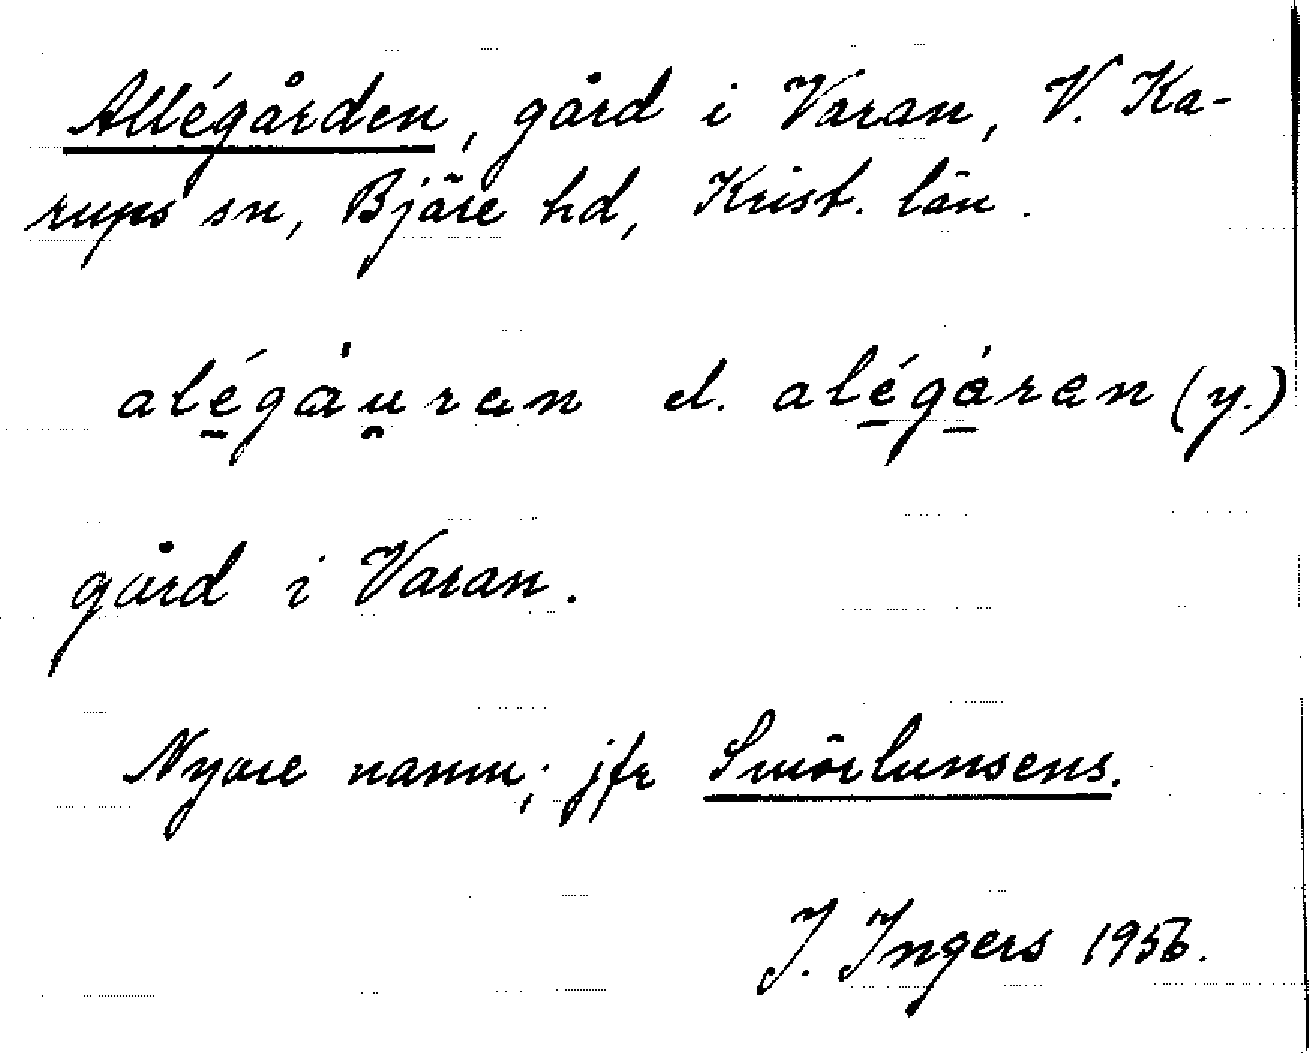 Allégården, gård i Varan, V. Ka-
rups sn, Bjäre hd, Krist. län.
alégåuran el. alégåran (y.)
gård i Varan.
Nyare namn; jfr Smörlunsens.
J. Ingers 1956.